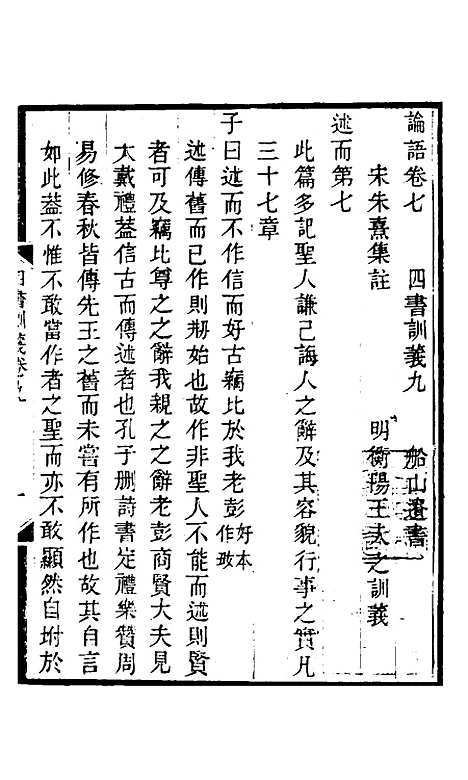 論語卷七　四書訓義九　船山遺書
宋朱熹集註　明衡陽王夫之訓義
述而第七
此篇多記聖人謙己誨人之辭及其容貌行事之實凡
三十七章
子曰述而不作信而好古竊比於我老彭好本作㪣
述傳舊而已作則刱始也故作非聖人不能而述則賢
者可及竊比尊之之辭我親之之辭老彭商賢大夫見
大戴禮葢信古而傳述者也孔子删詩書定禮樂贊周
易修春秋皆傳先王之舊而未嘗有所作也故其自言
如此葢不惟不敢當作者之聖而亦不敢顯然自坿於
四書訓義卷九